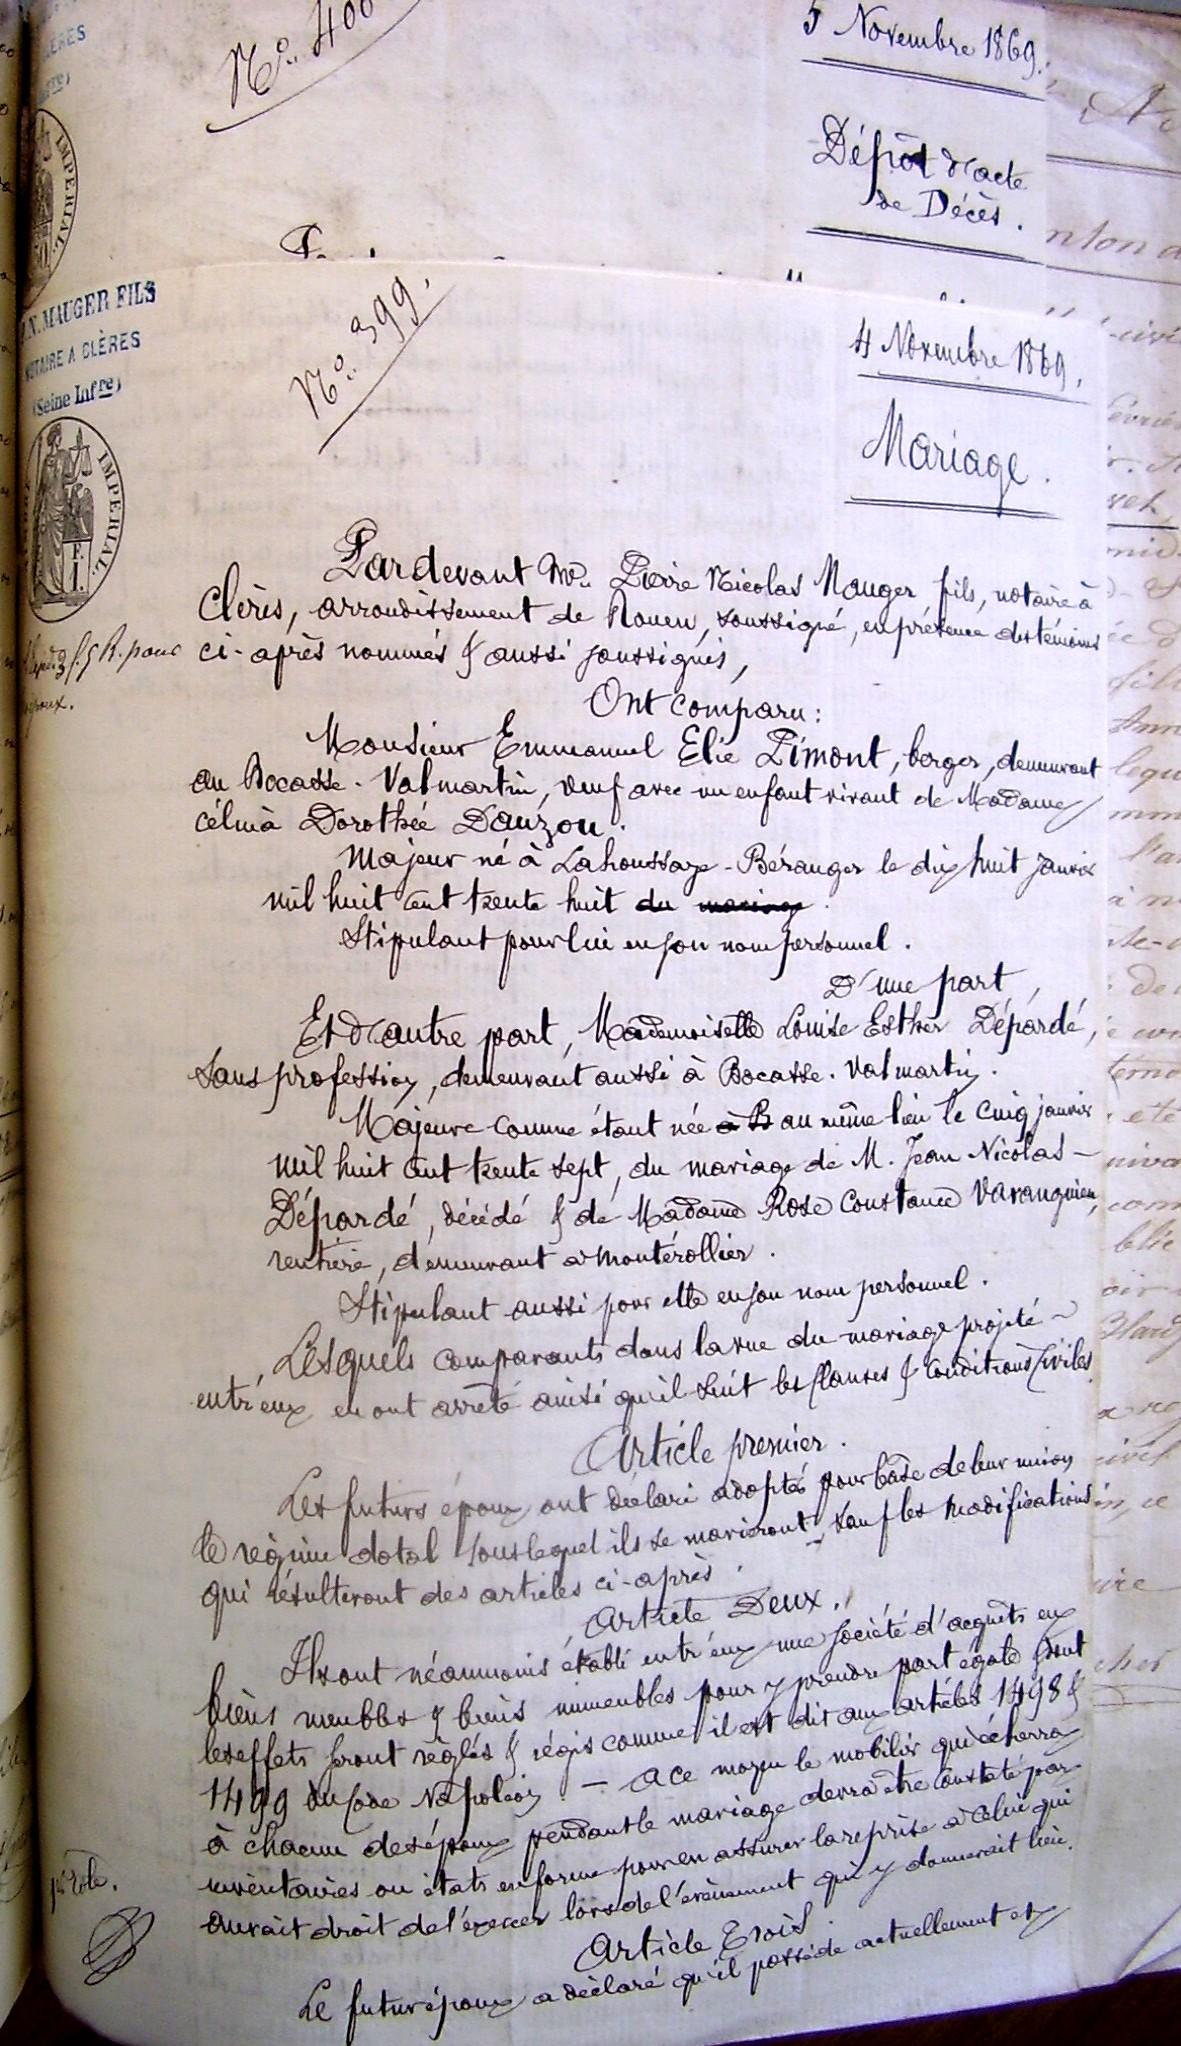 N° 400
5 Novembre 1869.
Dépôt d'acte
de Décès.
IMPERIAL
N° 399.
N. MAUGER FILS
NOTAIRE A CLÈRES
(Seine Infre)
IMPERIAL.
F.
1.
4 Novembre 1869.
Mariage.
Pardevant Me. Pierre Nicolas Mauger fils, notaire à
Clères, arrondissement de Rouen, soussigné, en présence des témoins
ci-après nommés & aussi soussignés,
Ont comparu:
Monsieur Emmanuel Elie Pimont, berger, demeurant
au Bocasse-Valmartin, veuf avec un enfant vivant de Madame
Célina Dorothée Dauzou.
Majeur né à Lahoussaye-Béranger le dix huit janvier
mil huit cent trente huit du mariage.
Stipulant pour lui en son nom personnel.
D'une part,
Et d'autre part, Mademoiselle Louise Esther Dépardé,
sans profession, demeurant aussi à Bocasse-Valmartin.
Majeure comme étant née à B au même lieu le cinq janvier
mil huit cent trente sept, du mariage de M. Jean Nicolas
Dépardé, décédé & de Madame Rose Constance Varanguien,
rentière, demeurant à Montérollier.
Stipulant aussi pour elle en son nom personnel.
Lesquels comparants dans la vue du mariage projeté
entr'eux en ont arrêté ainsi qu'il suit les clauses & conditions civiles.
Article premier.
Les futurs époux ont déclaré adopter pour base de leur union
le régime dotal sous lequel ils se marieront, sauf les modifications
qui résulteront des articles ci-après.
Article Deux.
Ils ont néanmoins établi entr'eux une société d'acquêts en
biens meubles & biens immeubles pour y prendre part égale dont
les effets seront réglés & régis comme il est dit aux articles 1498 &
1499 du Code Napoléon — A ce moyen le mobilier qui écherra
à chacun des époux pendant le mariage devra être constaté par
inventaires ou états en forme pour en assurer la reprise à celui qui
aurait droit de l'exercer lors de l'évènement qui y donnerait lieu.
1er Rôle.
Article Trois.
Le futur époux a déclaré qu'il possède actuellement et